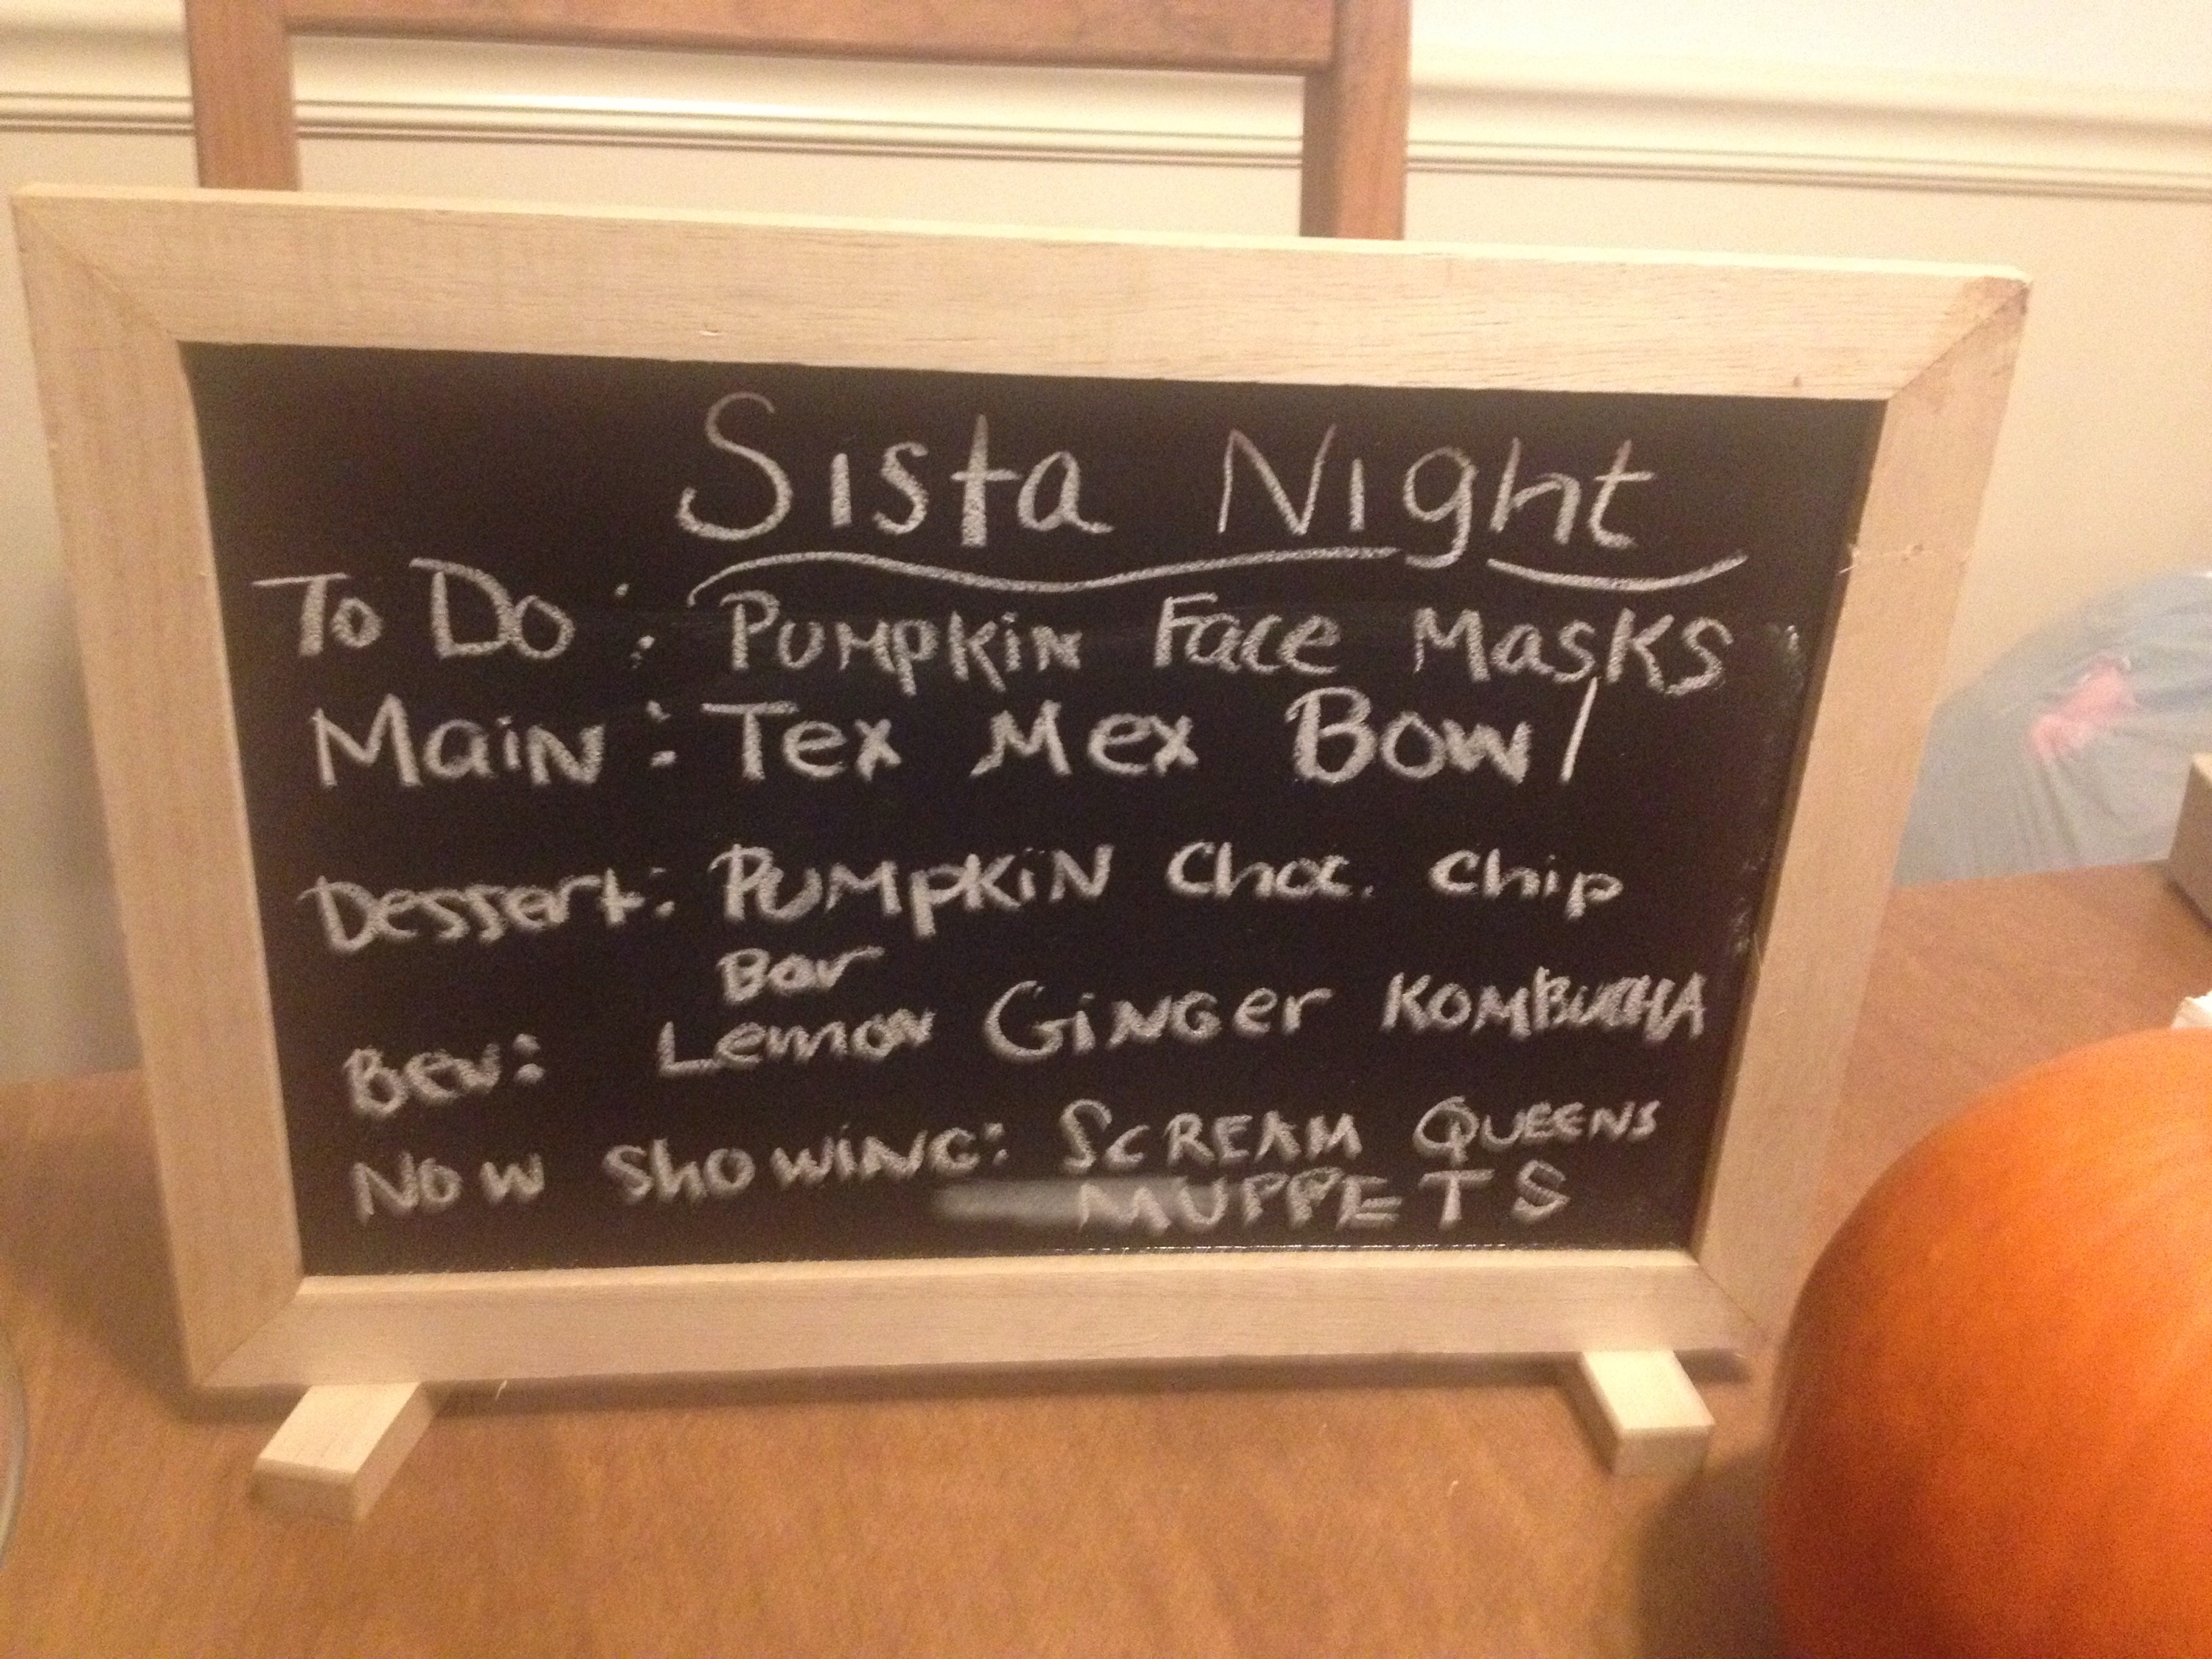 Sista Night
To Do: Pumpkin Face Masks
Main: Tex Mex Bowl
Dessert: Pumpkin Choc. Chip
Bar
Bev: Lemon Ginger KOMBUCHA
Now Showing: SCREAM QUEENS
MUPPETS